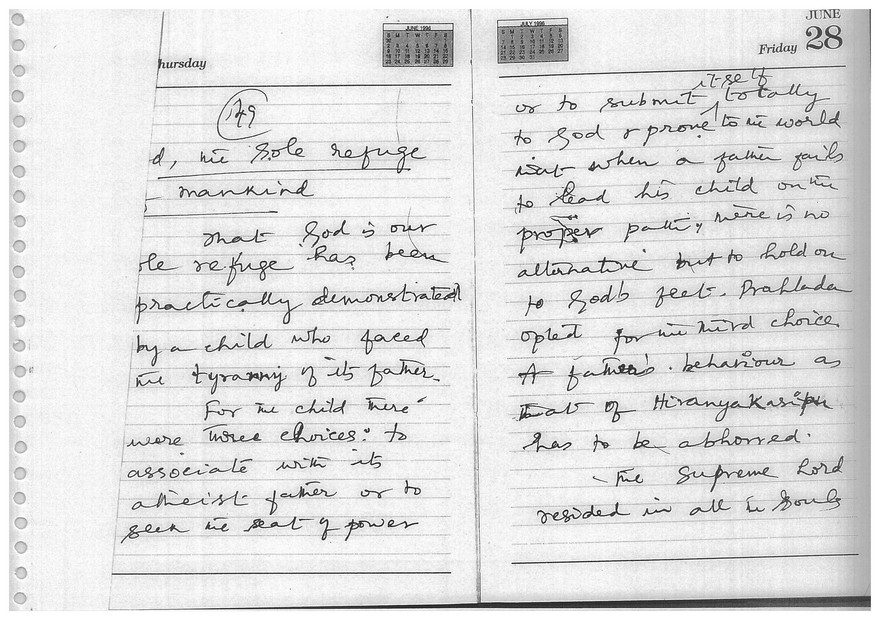 hursday
JUNE 1996
49
d, the Sole refuge
mankind
That God is our
ole refuge has been
practically demonstrated
by a child who faced
the tyranny of its father.
For the child there
were three choices: to
associate with its
atheist father or to
seek the seat of power
JULY 1996
JUNE
Friday 28
itself
or to submit totally
to God & prove to the world
that when a father fails
to lead his child on the
proper path, there is no
alternative but to hold on
to God's feet. Prahlada
opted for the third choice
A father's behaviour as
that of Hiranyakasipu
has to be abhorred.
The Supreme Lord
resided in all the Souls